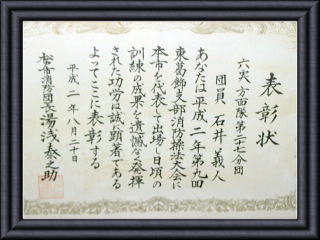 表彰状
六実方面隊第二十七分団
団員 石井義人
あなたは平成二年第九回
東葛飾支部消防操法大会に
本市を代表して出場し日頃の
訓練の成果を遺憾なく発揮
された功労は誠に顕著である
よってここに表彰する
平成二年八月二十日
松戸市消防団長 湯浅泰之助